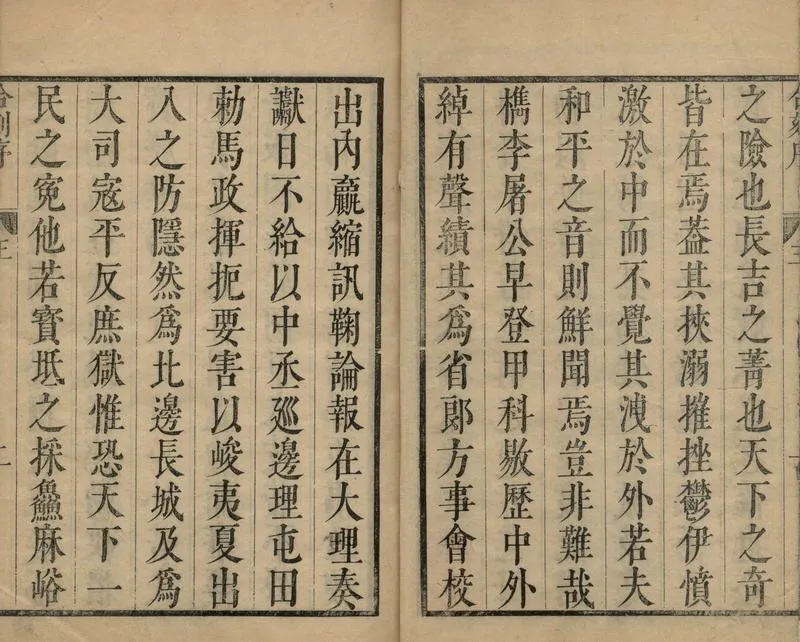 之險也長吉之菁也天下之奇
皆在焉葢其挾溺摧挫鬱伊憤
激於中而不覺其洩於外若夫
和平之音則鮮聞焉豈非難哉
檇李屠公早登甲科敭歷中外
綽有聲績其為省郎方事會校
出內羸縮訊鞠論報在大理奏
讞日不給以中丞廵邊理屯田
勑馬政揮扼要害以峻夷夏出
入之防隱然為北邊長城及為
大司宼平反庶獄惟恐天下一
民之寃他若寳坻之採鱻麻峪